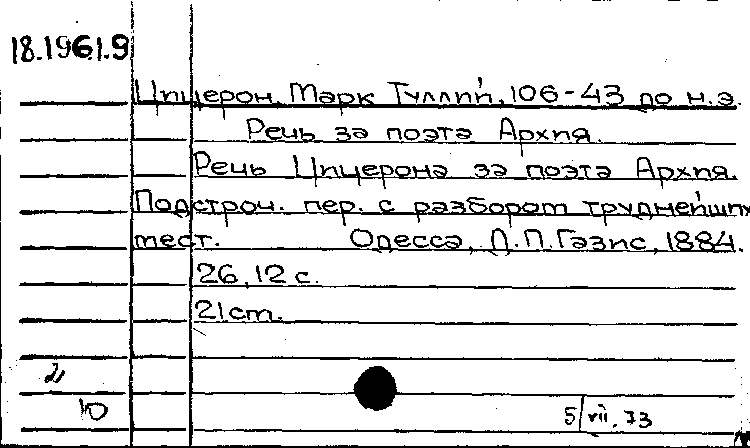 18.196.1.9
Цицерон, Марк Туллий, 106-43 до н.э.
Речь за поэта Архия.
Речь Цицерона за поэта Архия.
Подстроч. пер. с разбором труднейших
мест. Одесса, Л.П. Гэзис, 1884.
26, 12 с.
21 см.
Ю
5/VII.73